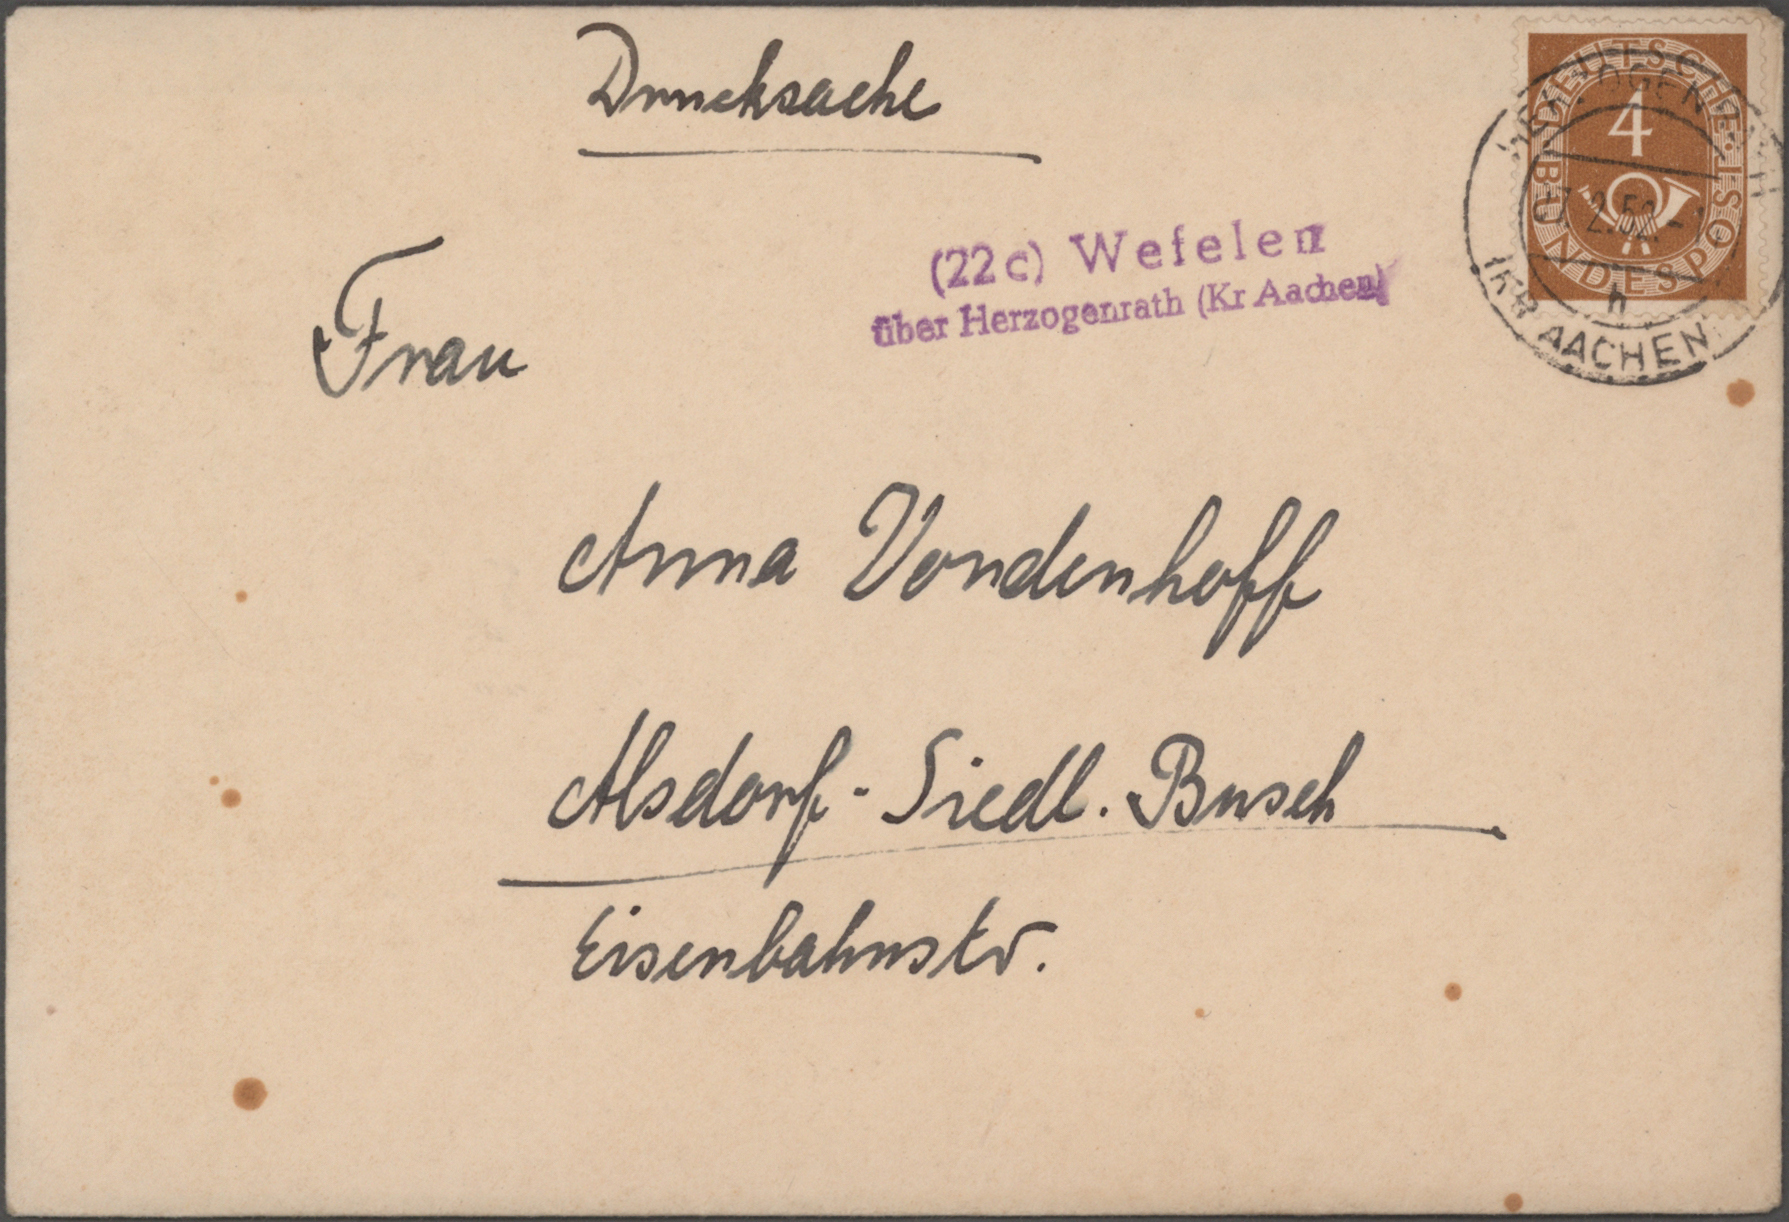 Drucksache
(22c) Wefelen
über Herzogenrath (Kr Aachen)
DEUTSCHE BUNDESPOST
4
HERZOGENRATH
2.52.-1
h
(KR AACHEN)
Frau
Anna Vondenhoff
Alsdorf-Siedl. Busch
Eisenbahnstr.